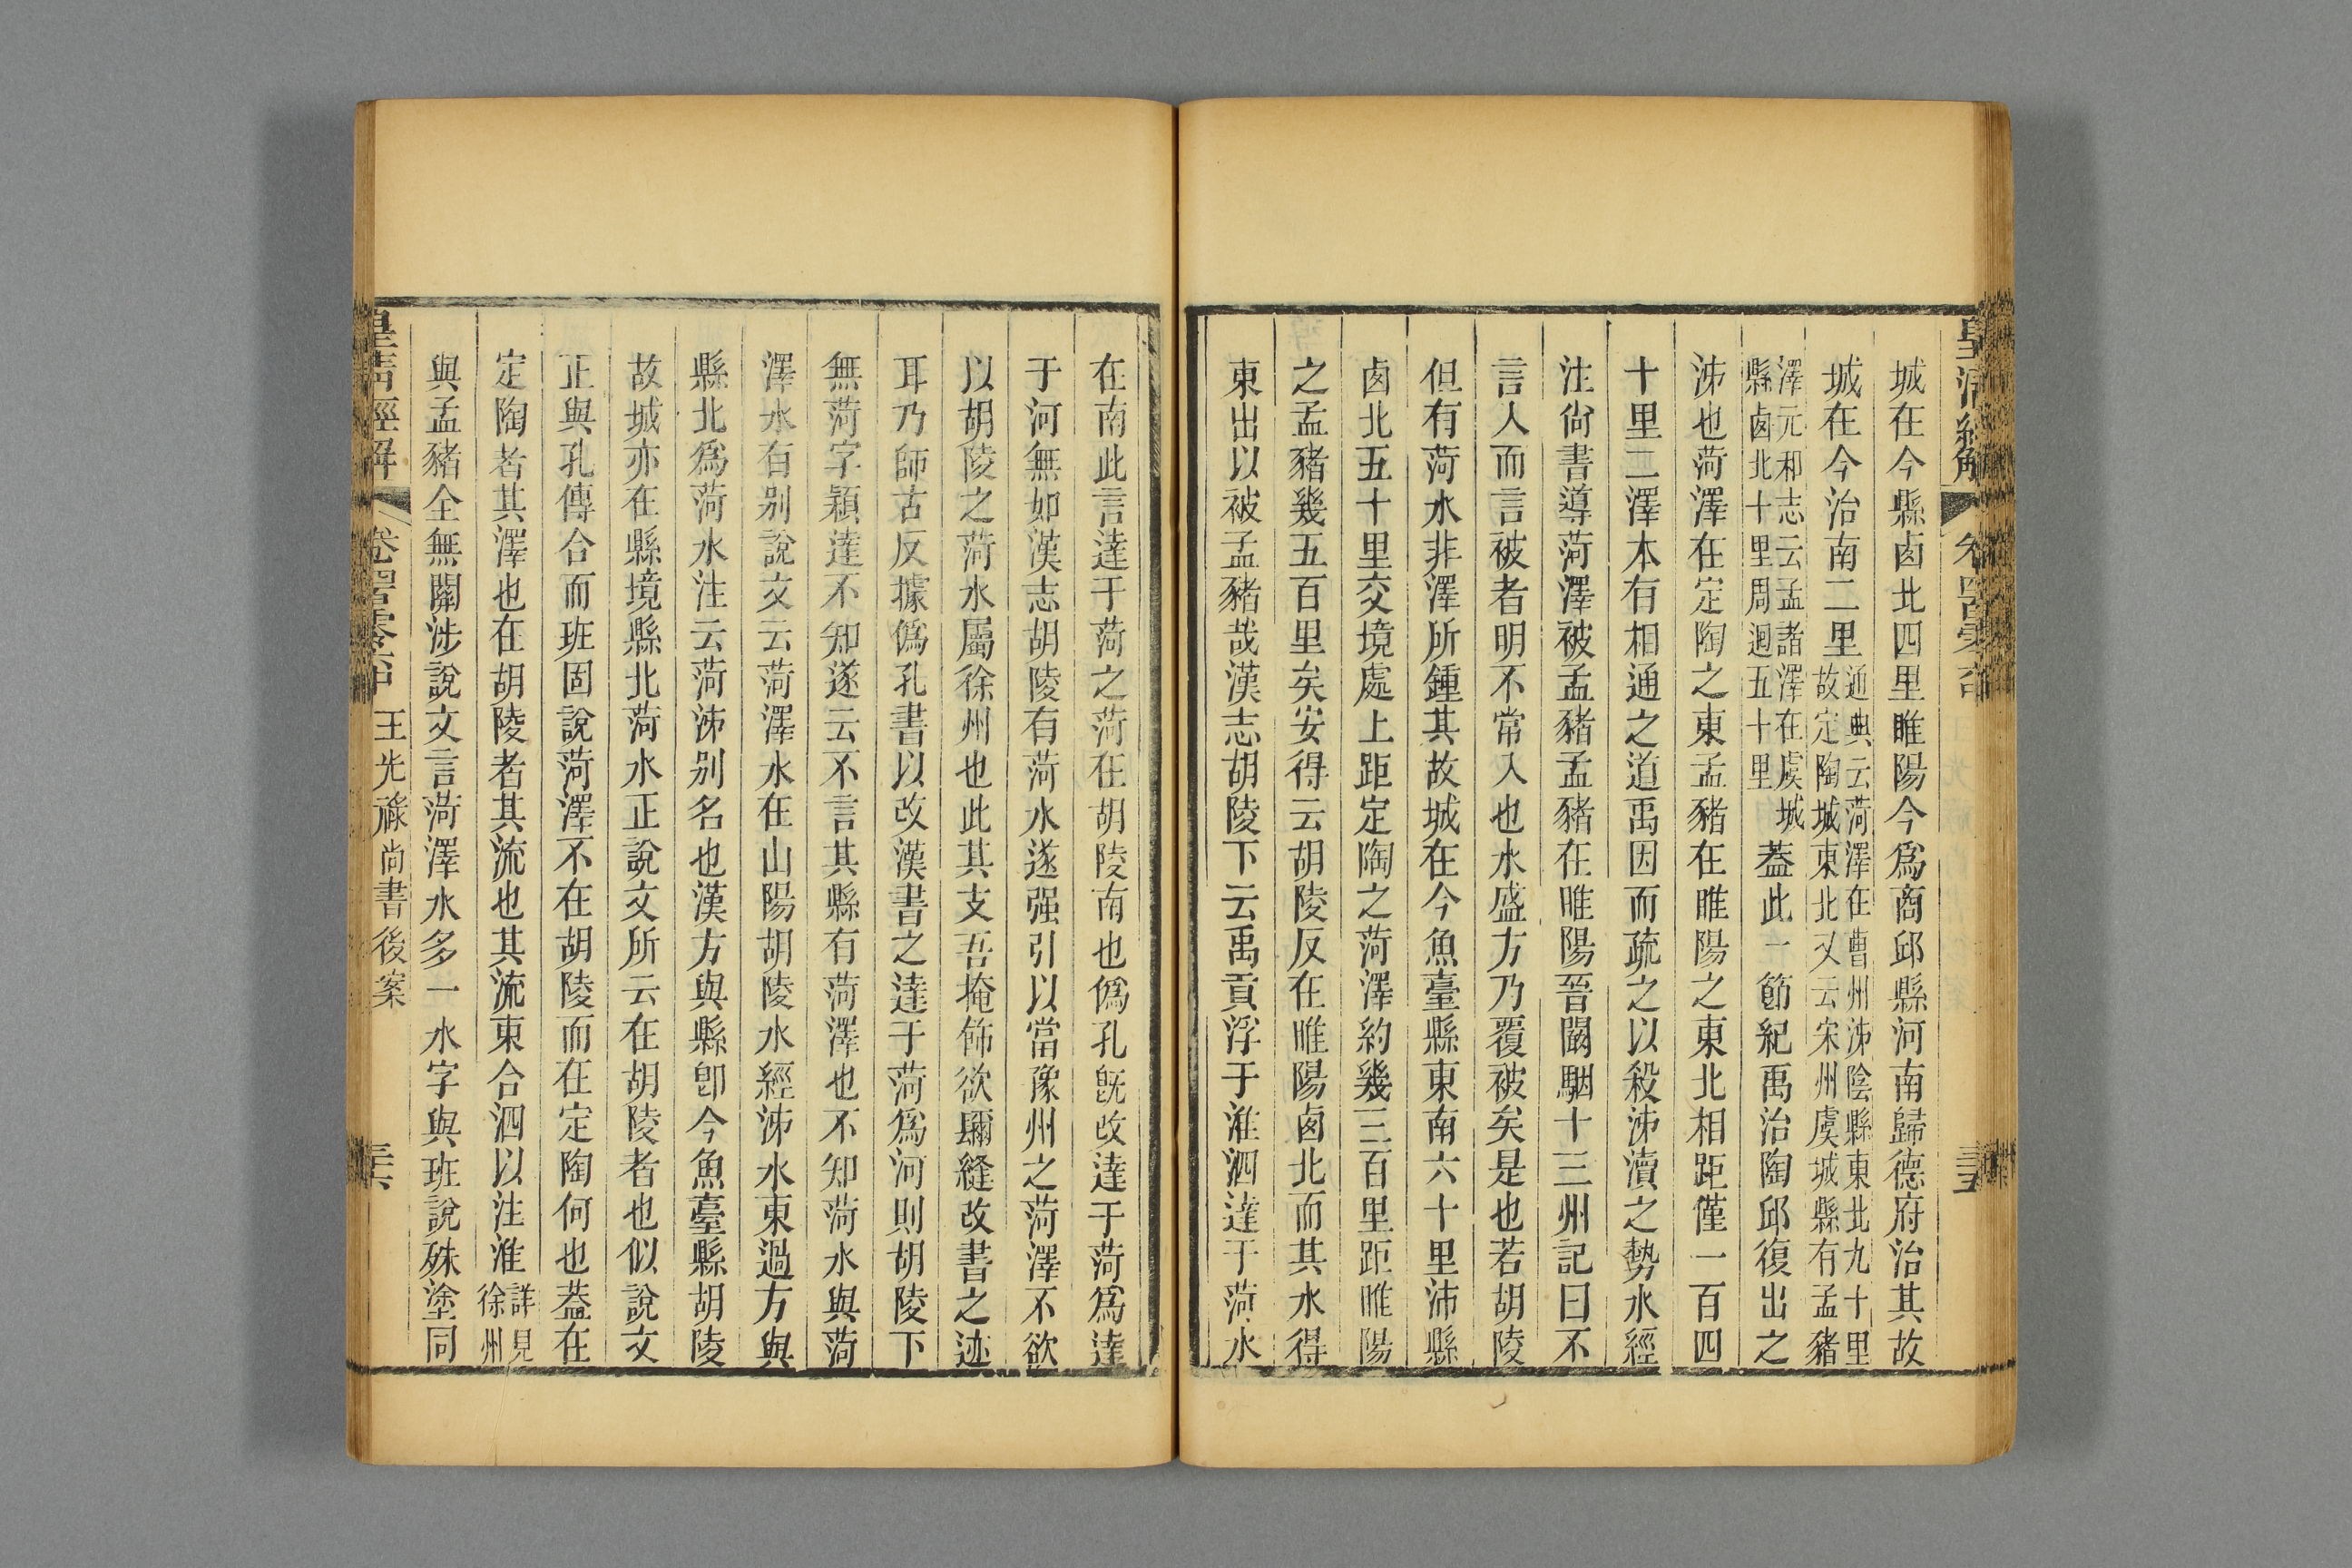 城在今縣卤北四里睢陽今爲商邱縣河南歸德府治其故
城在今治南二里通典云菏澤在曹州泲陰縣東北九十里故定陶城東北又云宋州虞城縣有孟豬
澤元和志云孟諸澤在虞城縣卤北十里周迴五十里蓋此一節紀禹治陶邱復出之
泲也菏澤在定陶之東孟豬在睢陽之東北相距僅一百四
十里二澤本有相通之道禹因而疏之以殺泲瀆之勢水經
注尙書導菏澤被孟豬孟豬在睢陽晉闞駰十三州記曰不
言入而言被者明不常入也水盛方乃覆被矣是也若胡陵
但有菏水非澤所鍾其故城在今魚臺縣東南六十里沛縣
卤北五十里交境處上距定陶之菏澤約幾三百里距睢陽
之孟豬幾五百里矣安得云胡陵反在睢陽卤北而其水得
東出以被孟豬哉漢志胡陵下云禹貢浮于淮泗達于菏水
在南此言達于菏之菏在胡陵南也僞孔旣改達于菏爲達
于河無如漢志胡陵有菏水遂强引以當豫州之菏澤不欲
以胡陵之菏水屬徐州也此其支吾掩飾欲彌縫改書之迹
耳乃師古反據僞孔書以改漢書之達于菏爲河則胡陵下
無菏字穎達不知遂云不言其縣有菏澤也不知菏水與菏
澤水有别說文云菏澤水在山陽胡陵水經泲水東過方與
縣北爲菏水注云菏泲别名也漢方與縣卽今魚臺縣胡陵
故城亦在縣境縣北菏水正說文所云在胡陵者也似說文
正與孔傳合而班固說菏澤不在胡陵而在定陶何也蓋在
定陶者其澤也在胡陵者其流也其流東合泗以注淮詳見徐州
與孟豬全無關涉說文言菏澤水多一水字與班說殊塗同
皇淸經解
卷四百零六中
王光祿尙書後案
三六